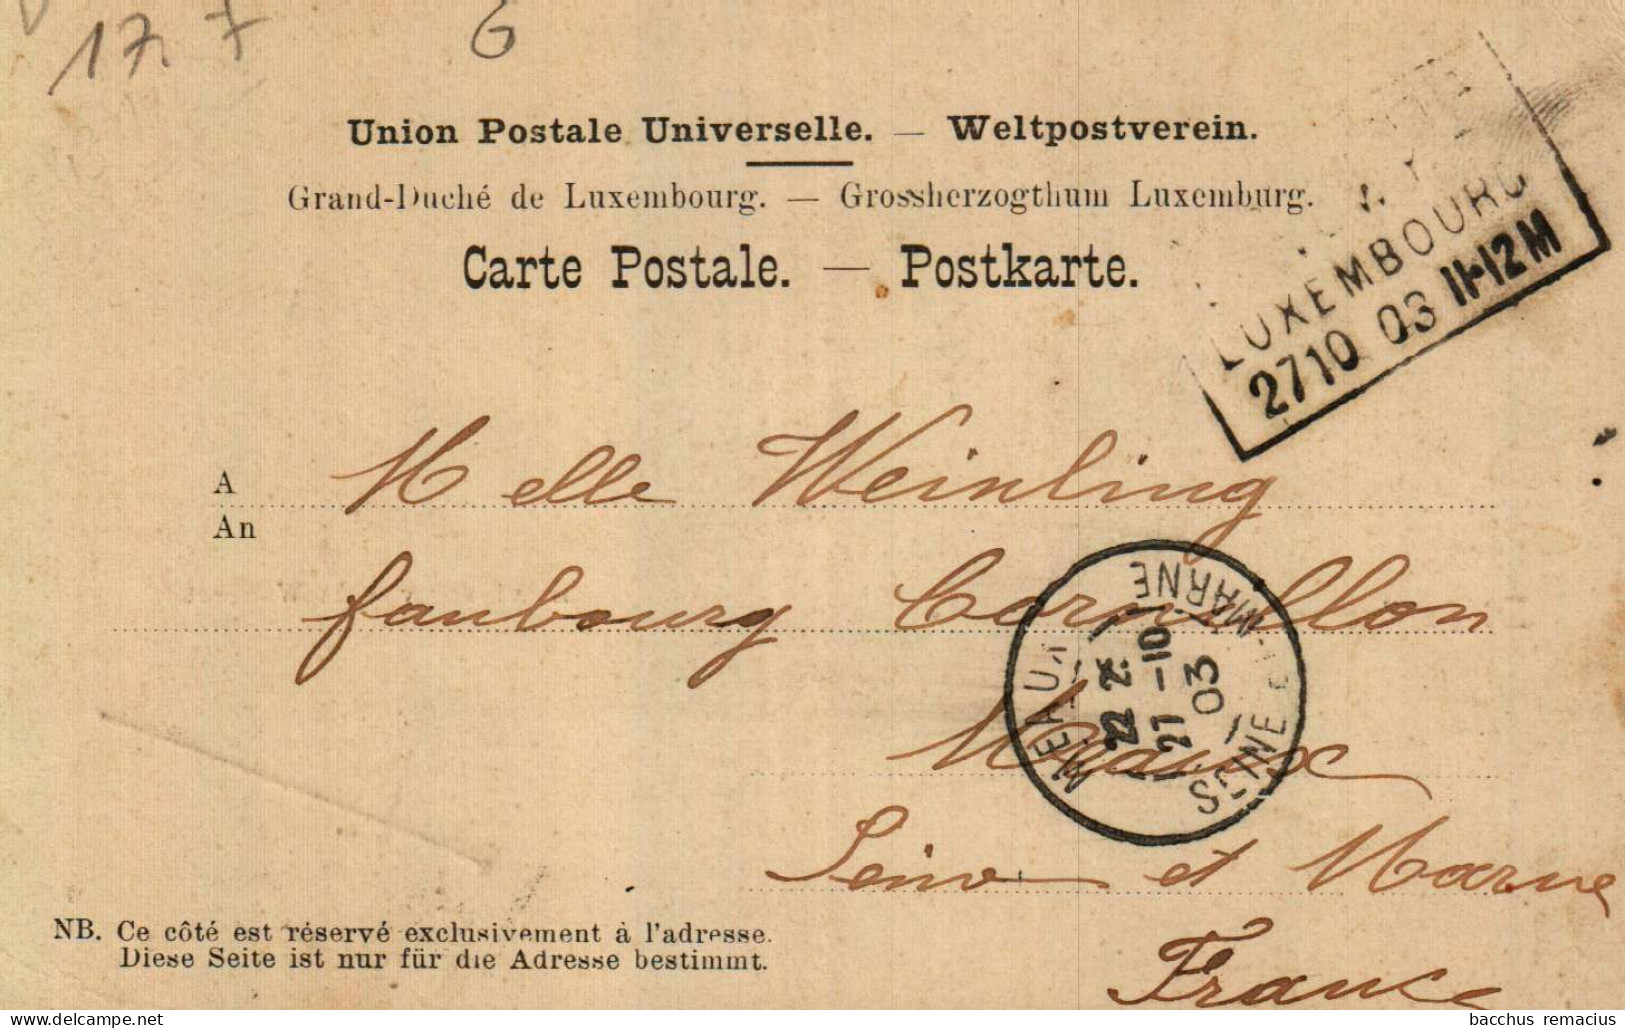 177 6
Union Postale Universelle. — Weltpostverein.
Grand-Duché de Luxembourg. — Grossherzogthum Luxemburg.
Carte Postale. — Postkarte.
LUXEMBOURG
27 10 03 11-12M
A Melle Weinling
An
faubourg Cornillon
Meaux
Seine et Marne
France
MEAUX
SEINE-ET-MARNE
27-10
03
NB. Ce côté est réservé exclusivement à l'adresse.
Diese Seite ist nur für die Adresse bestimmt.
bacchus remacius